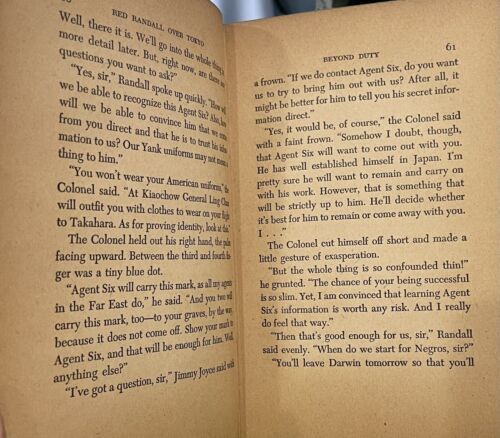 RED RANDALL OVER TOKYO
Well, there it is. We'll go into the whole thing
more detail later. But, right now, are there
questions you want to ask?"
"Yes, sir," Randall spoke up quickly. "How
we be able to recognize this Agent Six? Also,
will we be able to convince him that we
from you direct and that he is to trust his
mation to us? Our Yank uniforms may not
thing to him."
"You won't wear your American uniforms," the
Colonel said. "At Kiaochow General Ling
will outfit you with clothes to wear on your flight
to Takahara. As for proving identity, look at this."
The Colonel held out his right hand, the palm
facing upward. Between the third and fourth
ger was a tiny blue dot.
"Agent Six will carry this mark, as all my agents
in the Far East do," he said. "And you two will
carry this mark, too—to your graves, by the way,
because it does not come off. Show your mark to
Agent Six, and that will be enough for him. Well,
anything else?"
"I've got a question, sir," Jimmy Joyce said with
BEYOND DUTY 61
a frown. "If we do contact Agent Six, do you want
us to try to bring him out with us? After all, it
might be better for him to tell you his secret infor-
mation direct."
"Yes, it would be, of course," the Colonel said
with a faint frown. "Somehow I doubt, though,
that Agent Six will want to come out with you.
He has well established himself in Japan. I'm
pretty sure he will want to remain and carry on
with his work. However, that is something that
will be strictly up to him. He'll decide whether
it's best for him to remain or come away with you.
I . . ."
The Colonel cut himself off short and made a
little gesture of exasperation.
"But the whole thing is so confounded thin!"
he grunted. "The chance of your being successful
is so slim. Yet, I am convinced that learning Agent
Six's information is worth any risk. And I really
do feel that way."
"Then that's good enough for us, sir," Randall
said evenly. "When do we start for Negros, sir?"
"You'll leave Darwin tomorrow so that you'll